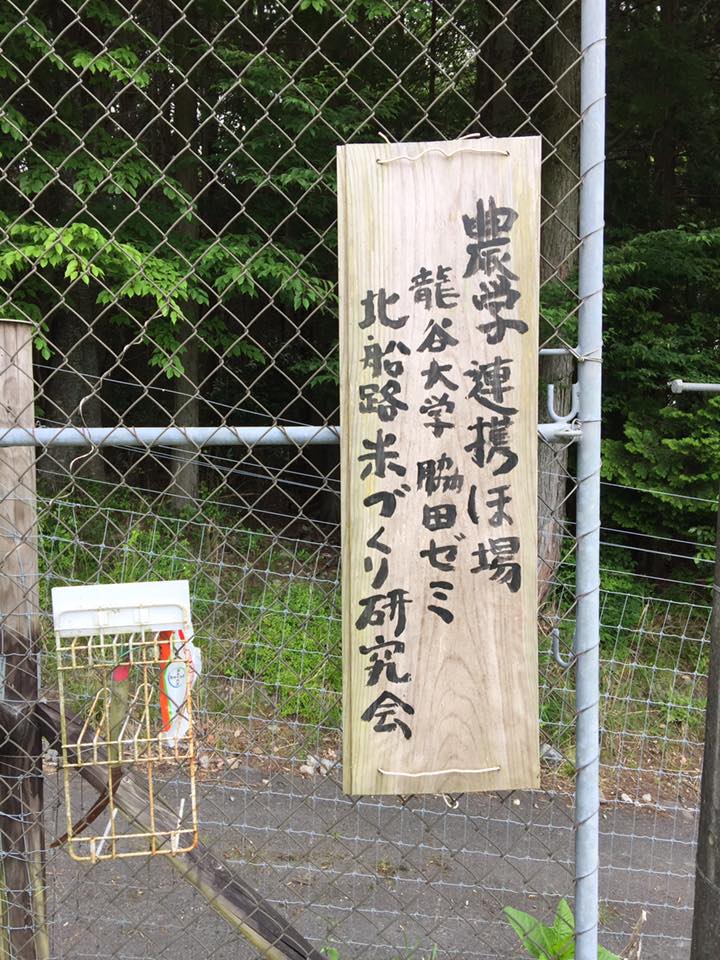 農学連携ほ場
龍谷大学 脇田ゼミ
北船路米づくり研究会